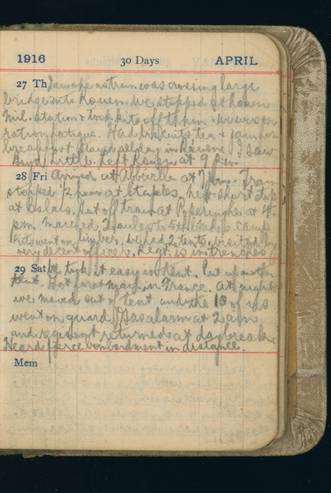 1916 30 Days APRIL
27 Th I awoke as train was crossing large
bridge into Rouen. We stopped at Rouen
Mil. Station & took kits off them & were on
ration fatigue. Had biscuits tea & jam for
breakfast. Stayed all day in Rouen. I saw
Left Rouen at 9 p.m.
28 Fri Arrived at Abbeville at 7 Train
stopped 2 p.m. at Etaples, next short stop
at Calais. Got off train at Poperinghe at
p.m. marched 2 miles to camp
Kits went on , we had 2 tents, visited by
very decent officers. Regt. is in trenches.
29 Sat We took it easy in tent. Put up another
tent. Got first mail in France. At night
we moved out of tent, and the 10 of us
went on guard. Gas alarm at 2 a.m.
and regiment returned at daybreak.
Heard fierce bombardment in distance.
Mem